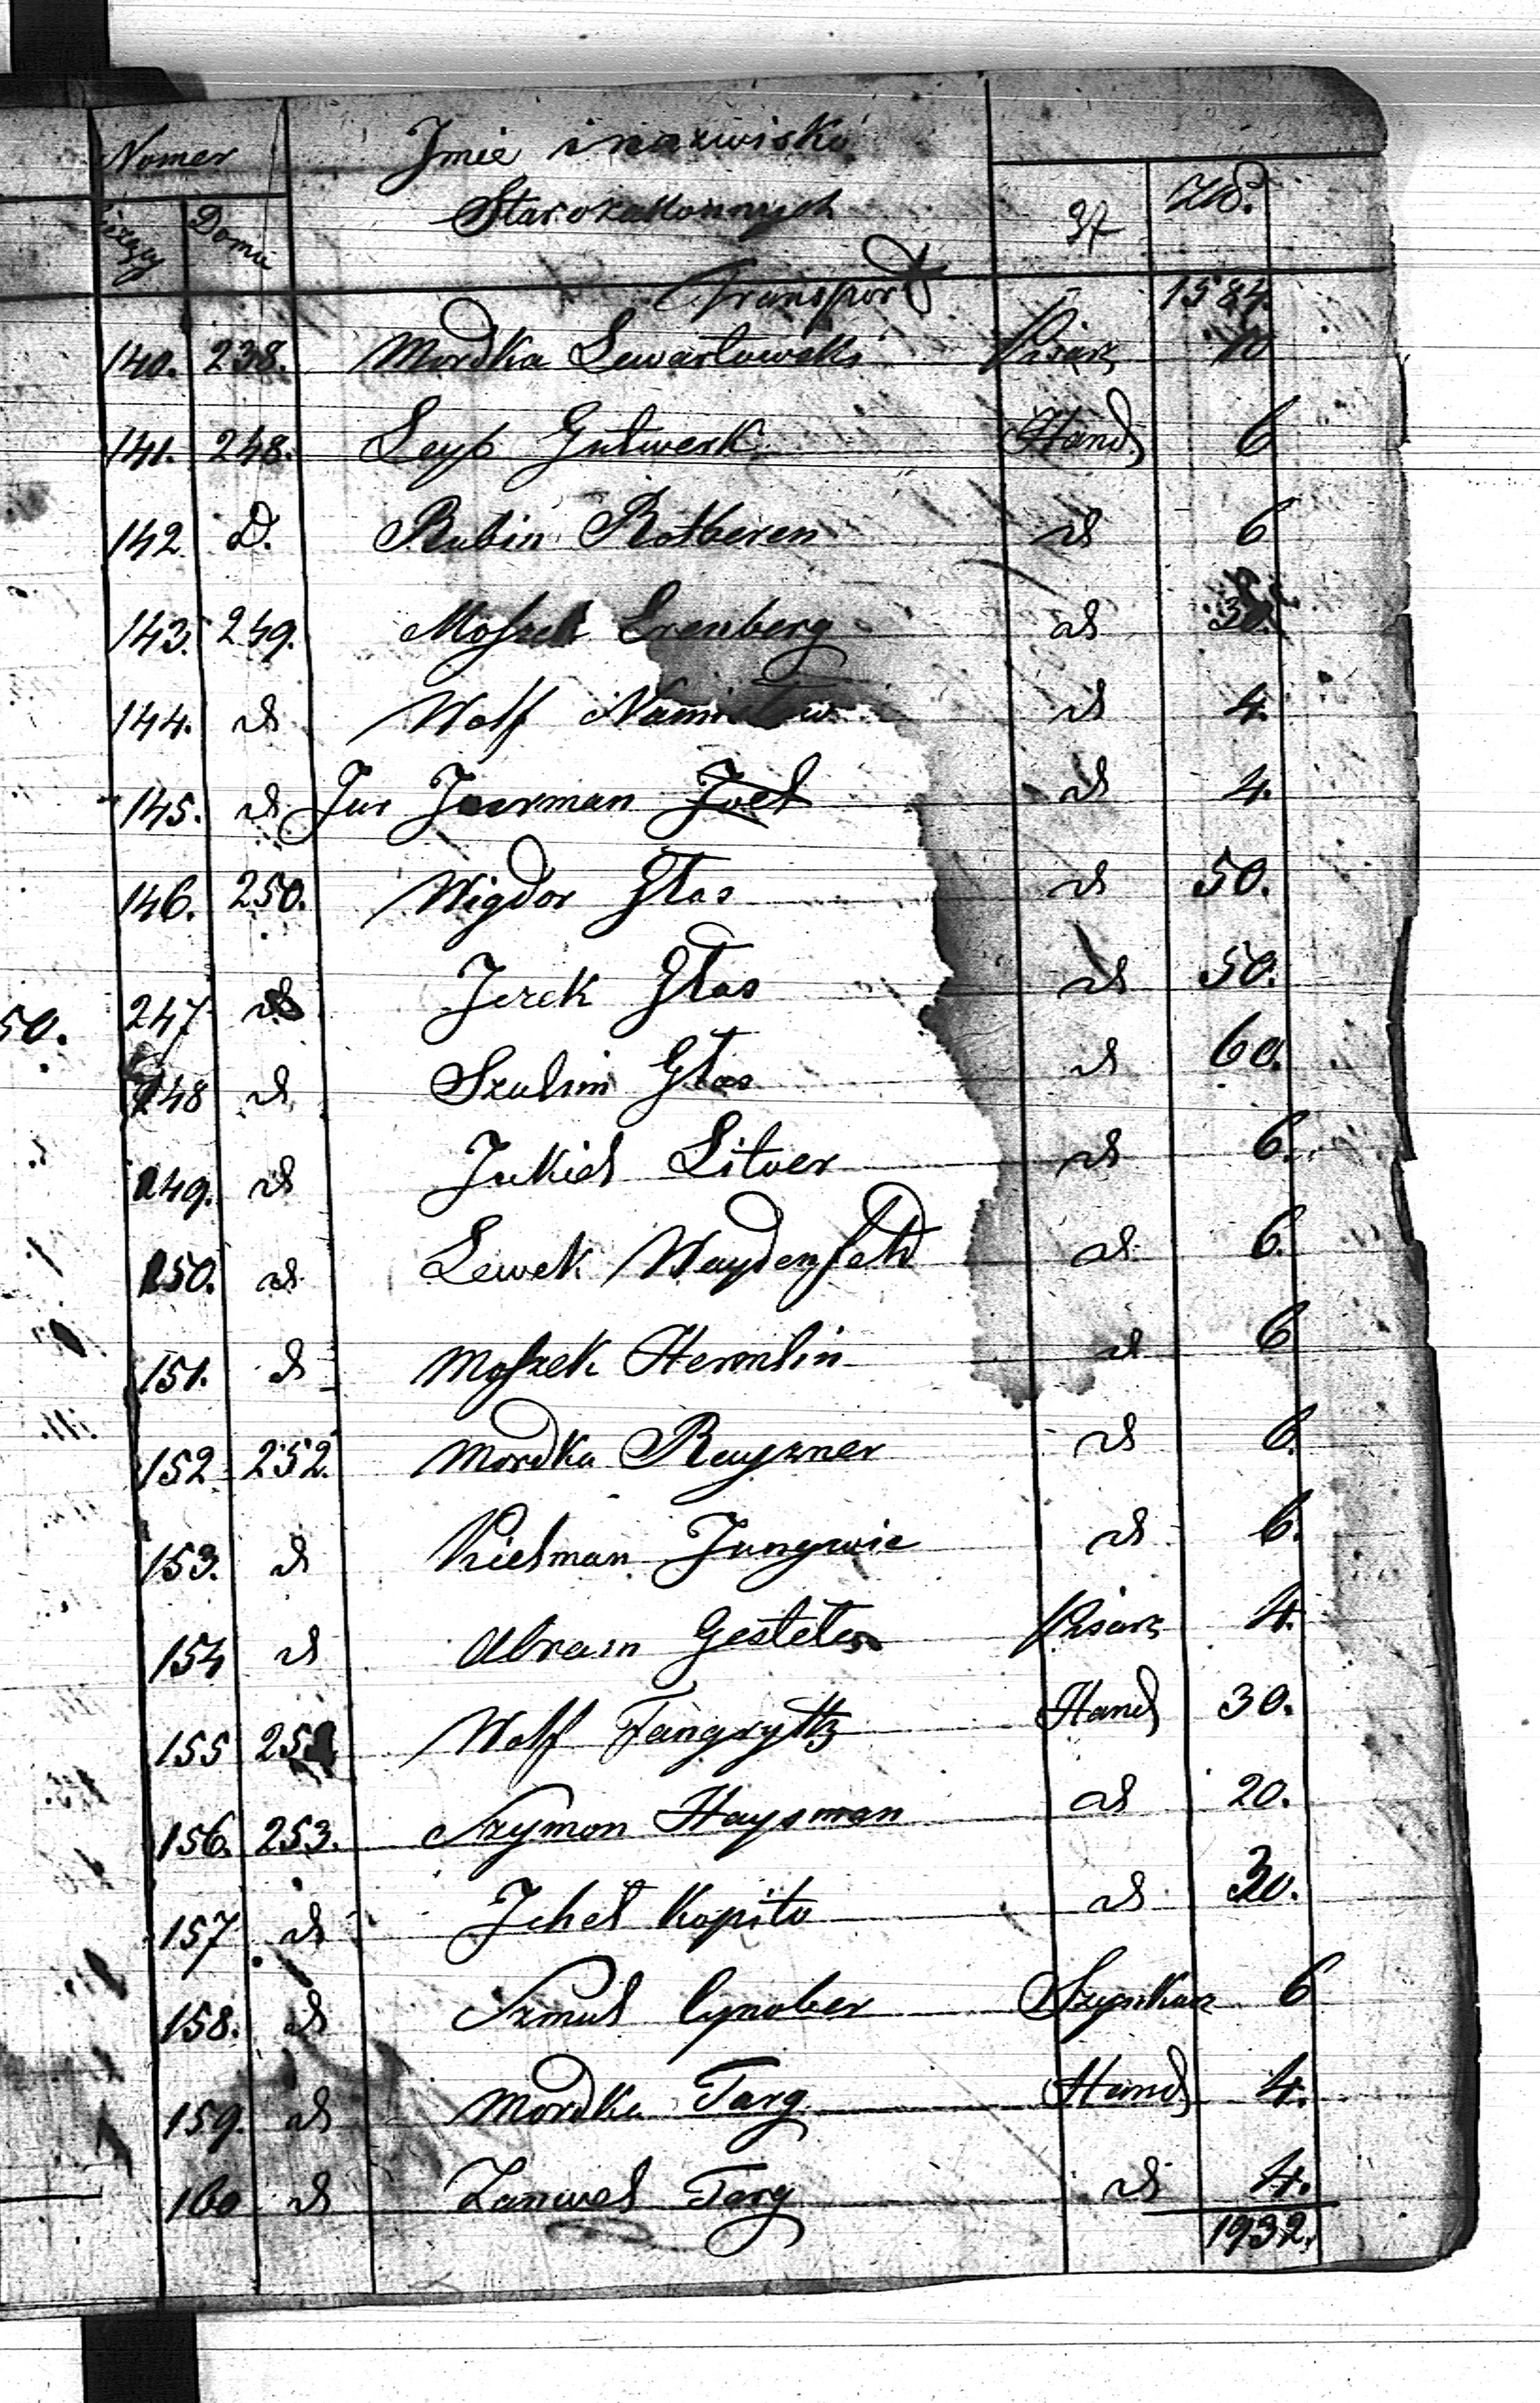 Numer Imie i nazwisko
Bieżący Domu Starozakonnych Zł.
Transport 1584.
140. 238. Mordka Lewartowski Pisarz 10
141. 248. Leyb Gutwerk Hand 6
142 D. Rubin Rotberen d 6
143. 249. Moszek Erenberg d 30.
144. d Wolf d 4.
145. d Jur Joerman Joel d 4.
146. 250. Wigdor Głas d 50.
247 d Jcek Głas d 50.
148 d Szulim Głas d 60.
149. d Jukiel Litver d 6.
150. d Lewek Waydenfeld d 6.
151. d Moszek Hermlin d 6
152 252. Mordka Rayzner d 6.
153. d Kielman Jungwic d 6.
154 d Abram Gesteter Pisarz 4.
155 252 Wolf Fangrytz Hand 30.
156. 253. Szymon Haysman d 20.
157 d Jchel Kopito d 30.
158. d Szmul Cynober Szynkarz 6
159. d Mordka Targ Hand 4.
160 d Zanwel Targ d 4.
1932.
50.